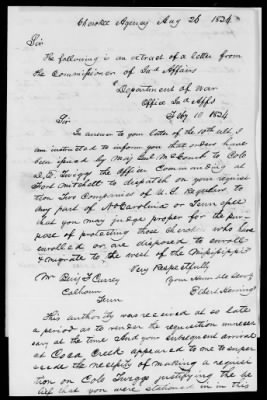 Cherokee Agency Aug 26 1834
Sir
The following is an extract of a letter from
the Commissioner of Ind Affairs
"Department of War
Office Ind Affs
Feby 10 1834
Sir
In answer to your letter of the 10th ult, I
am instructed to inform you that orders have
been issued by Maj Genl McComb to Colo
D. E. Twiggs the Officer Commanding at
Fort Mitchell to dispatch on your requisi
tion Two Companies of U.S. Regulars to
any part of N Carolina or Tenn
that you may judge proper for the pur-
pose of protecting those Cherokees who have
enrolled or are disposed to enroll
& migrate to the west of the Mississippi"
Very Respectfully
Mr Benj F Currey Your Hum ble Servt
Calhoun Elbert Herring
Tenn
This authority was received at so late
a period as to render the requisition unneces
sary at the time And your subsequent arrival
at Coosa Creek appeared to me to super
sede the necessity of making a requisi
tion on Colo Twiggs justifying the be
lief that you were stationed in this